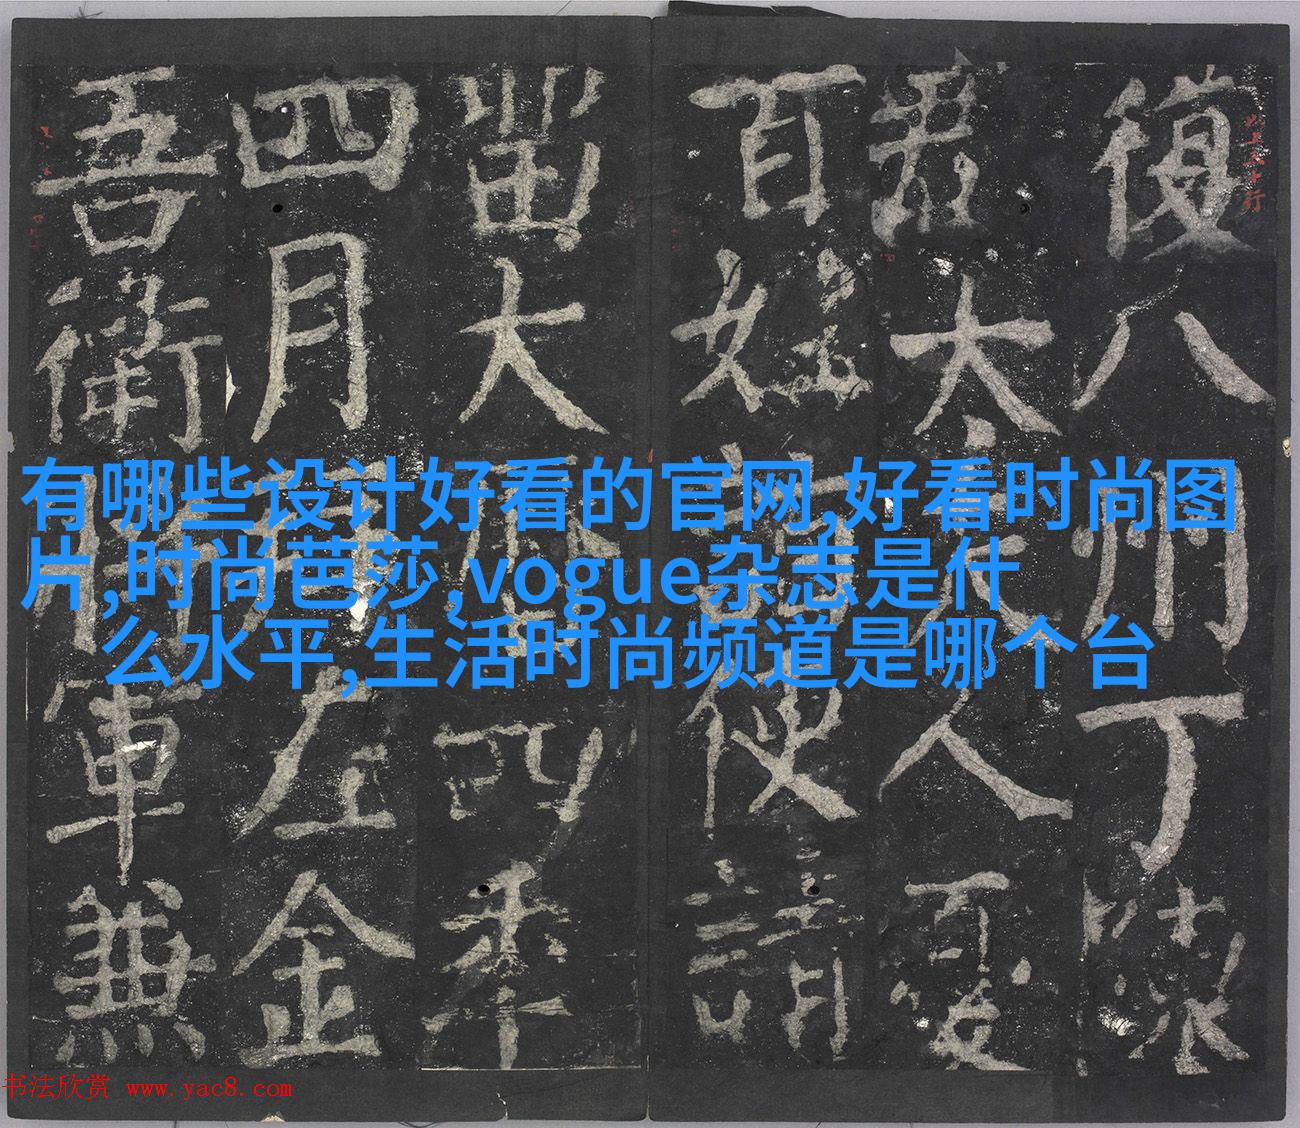 有哪些设计好看的官网,好看时尚图
片,时尚芭莎,vogue杂志是什
么水平,生活时尚频道是哪个台
復八州
丁陵
君太夫人
百姓
使請
大
四季
四月
左金
吾衛
將軍兼
书法欣赏 www.yac8.com